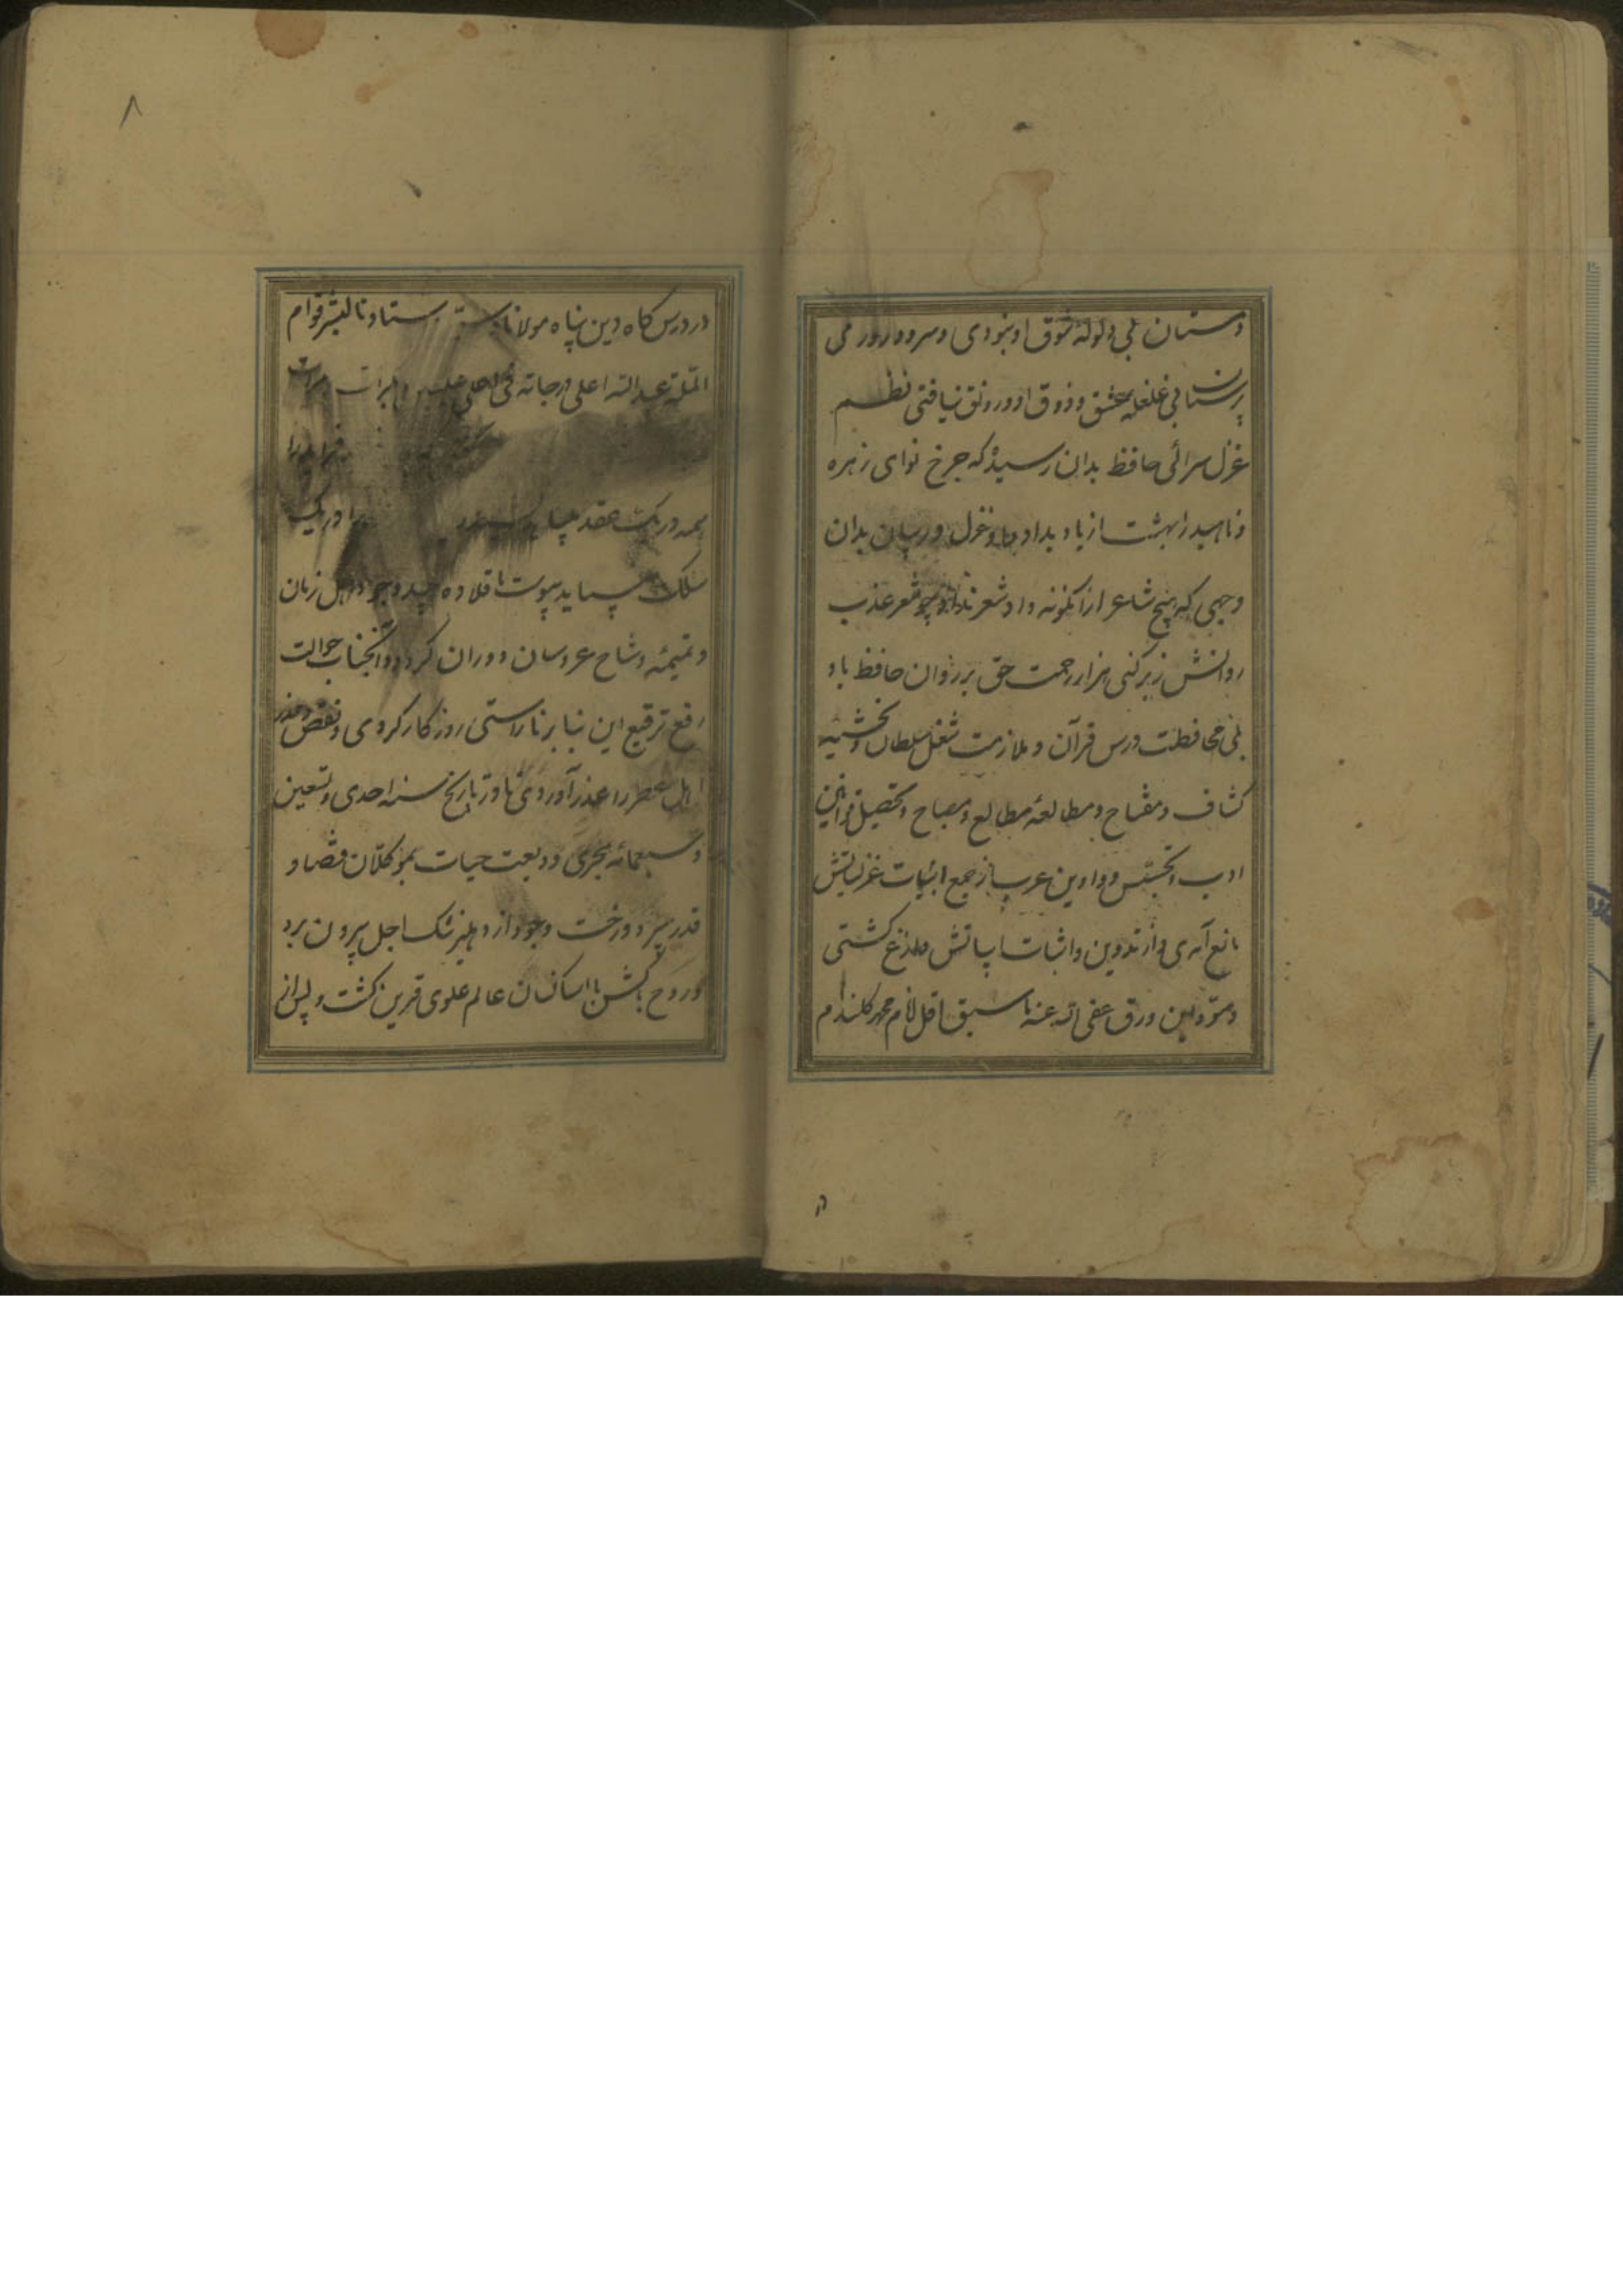 دستان بی ولوله شوق او نبودی و سرود رود می
پرستان بی غلغله عشق و ذوق او رونق نیافتی نظم
غزل سرائی حافظ بدان رسید که چرخ نوای زهره
و ناهید را بهشت از یاد بداد داد غزل در بیان بدان
وجهی که هیچ شاعر ازانگونه داد شعر نداد چو شعر عذب
روانش زبر کنی هزار رحمت حق بر روان حافظ باد
بلی محافظت درس قرآن و ملازمت شغل سلطان و تحشیه
کشاف و مفتاح و مطالعه مطالع و مصباح و تحصیل قوانین
ادب و تجسس دواوین عرب از جمع ابیات غزلیاتش
مانع آمدی و از تدوین و اثبات ابیاتش وازع گشتی
و مسود این ورق عفی الله عنه ما سبق اقل انام محمد گلندام
در درس گاه دین پناه مولانا استادنا البشر قوام
الملة عبدالله اعلی درجاته فی اعلی علیین
فراید را
همه در یک عقد می باید
سلک می باید پیوست تا قلاده جید وجود اهل زمان
و تمیمه وشاح عروسان دوران گردد و آنجناب حوالت
رفع ترفیع این بنا بر ناراستی روزگار کردی و نقض و غدر
اهل عصر را عذر آوردی تا در تاریخ سنه احدی و تسعین
و سبعمائه هجری ودیعت حیات بموکلان قضا و
قدر سپرد و رخت وجود از دهلیز تنگ اجل بیرون برد
و روح پاکش با ساکنان عالم علوی قرین گشت و پس از
۸